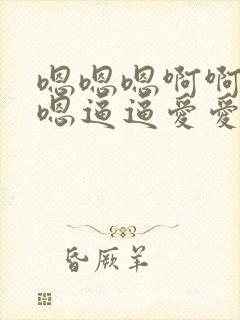 嗯嗯嗯啊啊
嗯逼逼爱爱
昏厥羊